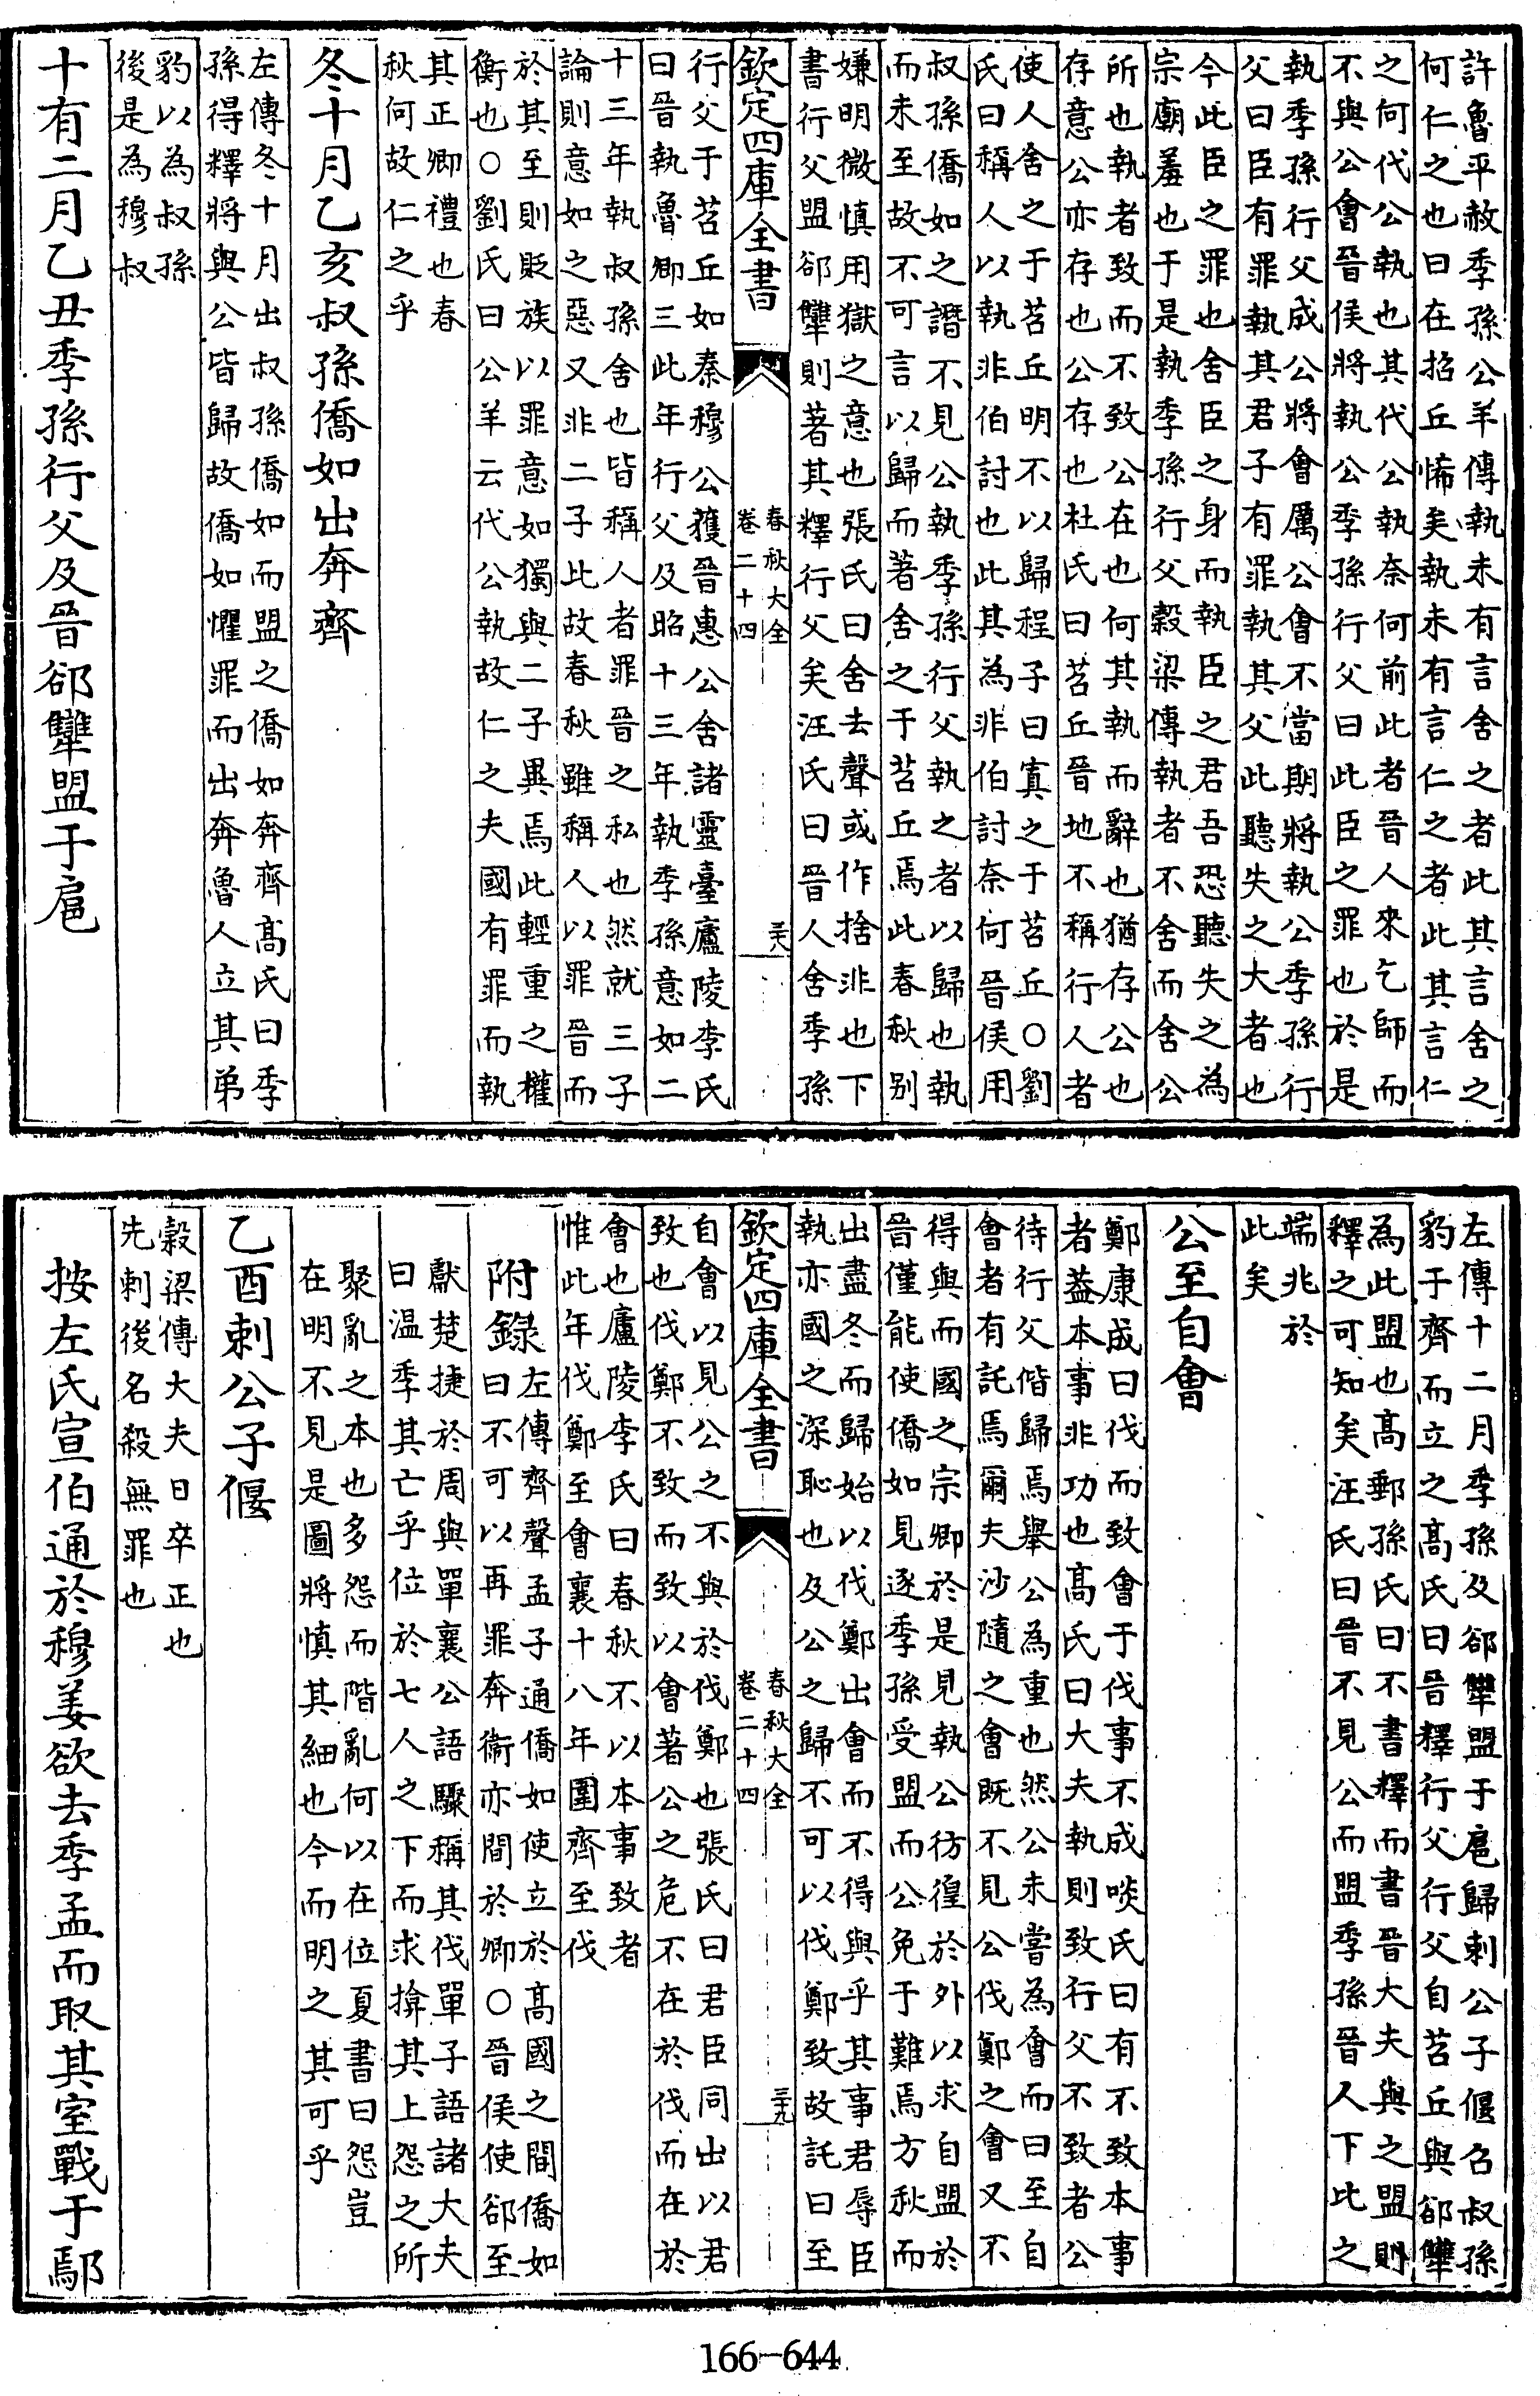 許魯平赦季孫公羊傳執未有言舍之者此其言舍之
何仁之也曰在招丘悕矣執未有言仁之者此其言仁
之何代公執也其代公執奈何前此者晉人來乞師而
不與公會晉侯將執公季孫行父曰此臣之罪也於是
執季孫行父成公將會厲公會不當期將執公季孫行
父曰臣有罪執其君子有罪執其父此聽失之大者也
今此臣之罪也舍臣之身而執臣之君吾恐聽失之為
宗廟羞也于是執季孫行父榖梁傳執者不舍而舍公
所也執者致而不致公在也何其執而辭也猶存公也
存意公亦存也公存也杜氏曰苕丘晉地不稱行人者
使人舍之于苕丘明不以歸程子曰寘之于苕丘○劉
氏曰稱人以執非伯討也此其為非伯討奈何晉侯用
叔孫僑如之譖不見公執季孫行父執之者以歸也執
而未至故不可言以歸而著舍之于苕丘焉此春秋别
嫌明微慎用獄之意也張氏曰舍去聲或作捨非也下
書行父盟郤犨則著其釋行父矣汪氏曰晉人舍季孫
欽定四庫全書
春秋大全
卷二十四
三十八
行父于苕丘如秦穆公獲晉惠公舍諸靈臺廬陵李氏
曰晉執魯卿三此年行父及昭十三年執季孫意如二
十三年執叔孫舍也皆稱人者罪晉之私也然就三子
論則意如之惡又非二子此故春秋雖稱人以罪晉而
於其至則貶族以罪意如獨與二子異焉此輕重之權
衡也○劉氏曰公羊云代公執故仁之夫國有罪而執
其正卿禮也春
秋何故仁之乎
冬十月乙亥叔孫僑如出奔齊
左傳冬十月出叔孫僑如而盟之僑如奔齊髙氏曰季
孫得釋將與公皆歸故僑如懼罪而出奔魯人立其弟
豹以為叔孫
後是為穆叔
十有二月乙丑季孫行父及晉郤犨盟于扈
左傳十二月季孫及郤犨盟于扈歸刺公子偃召叔孫
豹于齊而立之髙氏曰晉釋行父行父自苕丘與郤犨
為此盟也髙郵孫氏曰不書釋而書晉大夫與之盟則
釋之可知矣汪氏曰晉不見公而盟季孫晉人下此之
端兆於
此矣
公至自會
鄭康成曰伐而致會于伐事不成啖氏曰有不致本事
者葢本事非功也髙氏曰大夫執則致行父不致者公
待行父偕歸焉舉公為重也然公未嘗為會而曰至自
會者有託焉爾夫沙隨之會既不見公伐鄭之會又不
得與而國之宗卿於是見執公彷徨於外以求自盟於
晉僅能使僑如見逐季孫受盟而公免于難焉方秋而
出盡冬而歸始以伐鄭出會而不得與乎其事君辱臣
執亦國之深恥也及公之歸不可以伐鄭致故託曰至
欽定四庫全書
春秋大全
卷二十四
三十九
自會以見公之不與於伐鄭也張氏曰君臣同出以君
致也伐鄭不致而致以會著公之危不在於伐而在於
會也廬陵李氏曰春秋不以本事致者
惟此年伐鄭至會襄十八年圍齊至伐
附錄左傳齊聲孟子通僑如使立於髙國之間僑如
曰不可以再罪奔衞亦間於卿○晉侯使郤至
獻楚捷於周與單襄公語驟稱其伐單子語諸大夫
曰温季其亡乎位於七人之下而求揜其上怨之所
聚亂之本也多怨而階亂何以在位夏書曰怨豈
在明不見是圖將慎其細也今而明之其可乎
乙酉刺公子偃
榖梁傳大夫日卒正也
先刺後名殺無罪也
按左氏宣伯通於穆姜欲去季孟而取其室戰于鄢
166-644